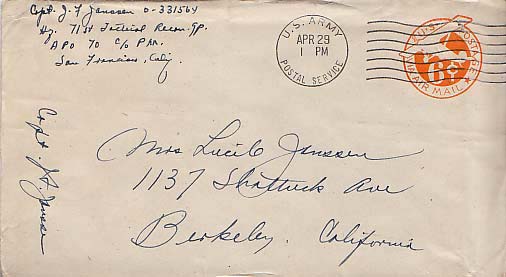 Capt. J. F. Janssen O-331564
Hq. 71st Tactical Recon. Gp.
APO 70 c/o P.M.
San Francisco, Calif.
U.S. ARMY
APR 29
1 PM
POSTAL SERVICE
U.S. POSTAGE
6¢
VIA AIR MAIL
Mrs Lucile Janssen
1137 Shattuck Ave
Berkeley. California
Capt J.F. Janssen